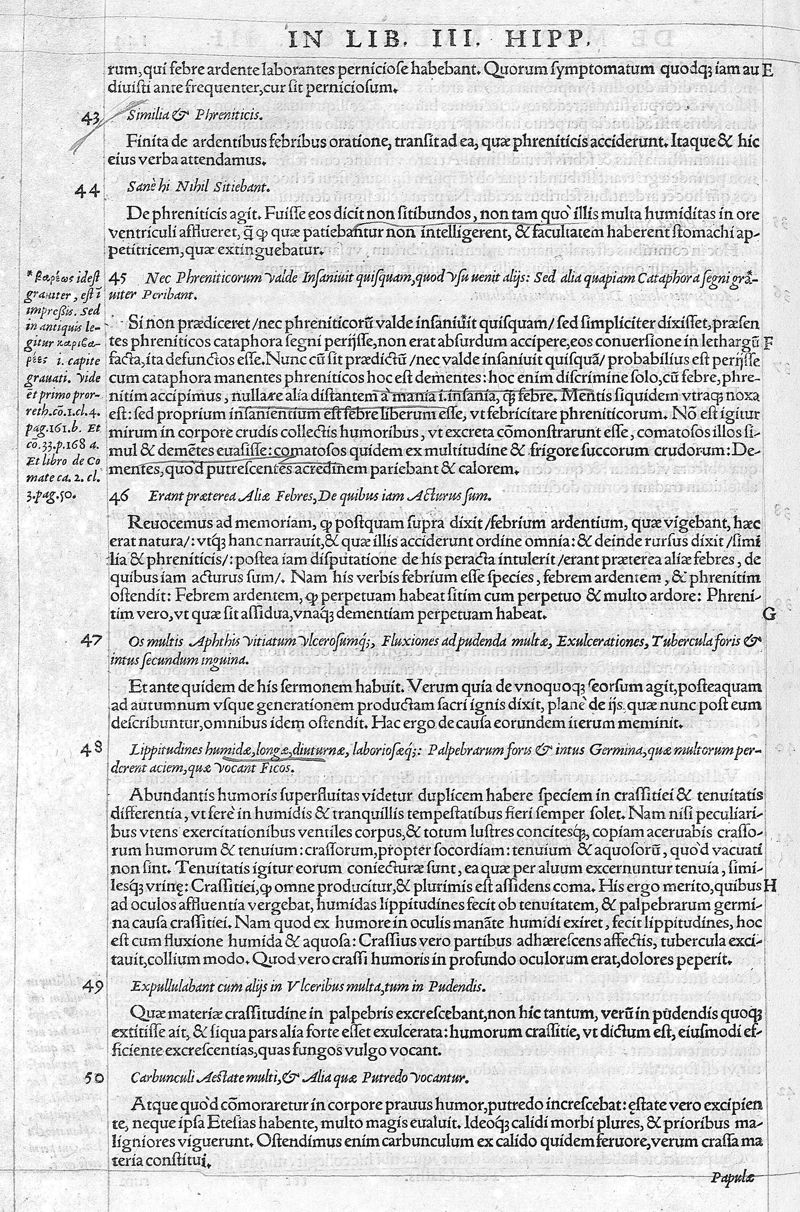 IN LIB. III. HIPP.
rum, qui febre ardente laborantes perniciose habebant. Quorum symptomatum quodq; iam au E
divisti ante frequenter, cur sit perniciosum.
43 Similia & Phreniticis.
Finita de ardentibus febribus oratione, transit ad ea, quæ phreniticis acciderunt. Itaque & hic
eius verba attendamus.
44 Sanè hi Nihil Sitiebant.
De phreniticis agit. Fuisse eos dicit non sitibundos, non tam quò illis multa humiditas in ore
ventriculi afflueret, q̃ ꝙ quæ patiebantur non intelligerent, & facultatem haberent stomachi ap-
petitricem, quæ extinguebatur.
* βαρέως idest
grauiter, est ĩ
impressis. Sed
in antiquis le-
gitur
i. capite
grauati. Vide
et primo pror-
reth.cõ.1.cl.4.
pag.161.b. Et
co.33.p.168 a.
Et libro de Co
mate ca. 2. cl.
3.pag.50.
45 Nec Phreniticorum Valde Insaniuit quisquam, quod Vsu uenit alijs: Sed alia quapiam Cataphora segni grã-
uiter Peribant.
Si non prædiceret /nec phreniticorũ valde insaniuit quisquam/ sed simpliciter dixisset, præsen
tes phreniticos cataphora segni perijsse, non erat absurdum accipere, eos conuersione in lethargũ F
facta, ita defunctos esse. Nunc cũ sit prædictũ /nec valde insaniuit quisquã/ probabilius est perijsse
cum cataphora manentes phreniticos hoc est dementes: hoc enim discrimine solo, cũ sebre, phre-
nitim accipimus, nulla re alia distantem a mania i. insania, ꝙ febre. Mentis siquidem vtraq; noxa
est: sed proprium insanientium est febre liberum esse, vt febricitare phreniticorum. Nõ est igitur
mirum in corpore crudis collectis humoribus, vt excreta cõmonstrarunt esse, comatosos illos si-
mul & demẽtes euasisse: comatosos quidem ex multitudine & frigore succorum crudorum: De-
mentes, quod putrescentes acredinem pariebant & calorem.
46 Erant præterea Aliæ Febres, De quibus iam Acturus sum.
Reuocemus ad memoriam, ꝙ postquam supra dixit /febrium ardentium, quæ vigebant, hæc
erat natura/: vtq; hanc narrauit, & quæ illis acciderunt ordine omnia: & deinde rursus dixit /simi
lia & phreniticis/: postea iam disputatione de his peracta intulerit /erant præterea aliæ febres, de
quibus iam acturus sum/. Nam his verbis febrium esse species, febrem ardentem, & phrenitim
ostendit: Febrem ardentem, ꝙ perpetuam habeat sitim cum perpetuo & multo ardore: Phreni-
tim vero, vt quæ sit assidua, vnaq; dementiam perpetuam habeat. G
47 Os multis Aphthis Vitiatum Vlcerosumq;, Fluxiones ad pudenda multæ, Exulcerationes, Tubercula foris &
intus secundum inguina.
Et ante quidem de his sermonem habuit. Verum quia de vnoquoq; seorsum agit, posteaquam
ad autumnum vsque generationem productam sacri ignis dixit, planè de ijs quæ nunc post eum
describuntur, omnibus idem ostendit. Hac ergo de causa eorundem iterum meminit.
48 Lippitudines humidæ, longæ, diuturnæ, laboriosæq;: Palpebrarum foris & intus Germina, quæ multorum per-
derent aciem, quæ Vocant Ficos.
Abundantis humoris superfluitas videtur duplicem habere speciem in crassitiei & tenuitatis
differentia, vt ferè in humidis & tranquillis tempestatibus fieri semper solet. Nam nisi peculiari-
bus vtens exercitationibus ventiles corpus, & totum lustres concitesq;, copiam aceruabis crasso-
rum humorum & tenuium: crassorum, propter socordiam: tenuium & aquosorũ, quòd vacuati
non sint. Tenuitatis igitur eorum coniecturæ sunt, ea quæ per aluum excernuntur tenuia, simi-
lesq; vrinę: Crassitiei, ꝙ omne producitur, & plurimis est assidens coma. His ergo merito, quibus H
ad oculos affluentia vergebat, humidas lippitudines fecit ob tenuitatem, & palpebrarum germi-
na causa crassitiei. Nam quod ex humore in oculis manãte humidi exiret, fecit lippitudines, hoc
est cum fluxione humida & aquosa: Crassius vero partibus adhærescens affectis, tubercula exci-
tauit, collium modo. Quod vero crassi humoris in profundo oculorum erat, dolores peperit.
49 Expullulabant cum alijs in Vlceribus multa, tum in Pudendis.
Quæ materiæ crassitudine in palpebris excrescebant, non hic tantum, verũ in pudendis quoq;
extitisse ait, & siqua pars alia forte esset exulcerata: humorum crassitie, vt dictum est, eiusmodi ef-
ficiente excrescentias, quas fungos vulgo vocant.
50 Carbunculi Aestate multi, & Alia quæ Putredo Vocantur.
Atque quòd cõmoraretur in corpore prauus humor, putredo increscebat: ęstate vero excipien
te, neque ipsa Etesias habente, multo magis eualuit. Ideoq; calidi morbi plures, & prioribus ma-
ligniores viguerunt. Ostendimus enim carbunculum ex calido quidem feruore, verum crassa ma
teria constitui.
Papulæ